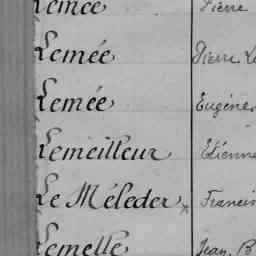 Lemée Pierre
Lemée Pierre Le
Lemée Eugène
Lemeilleur Etienne
Le Méleder Francis
Lemelle Jean, B